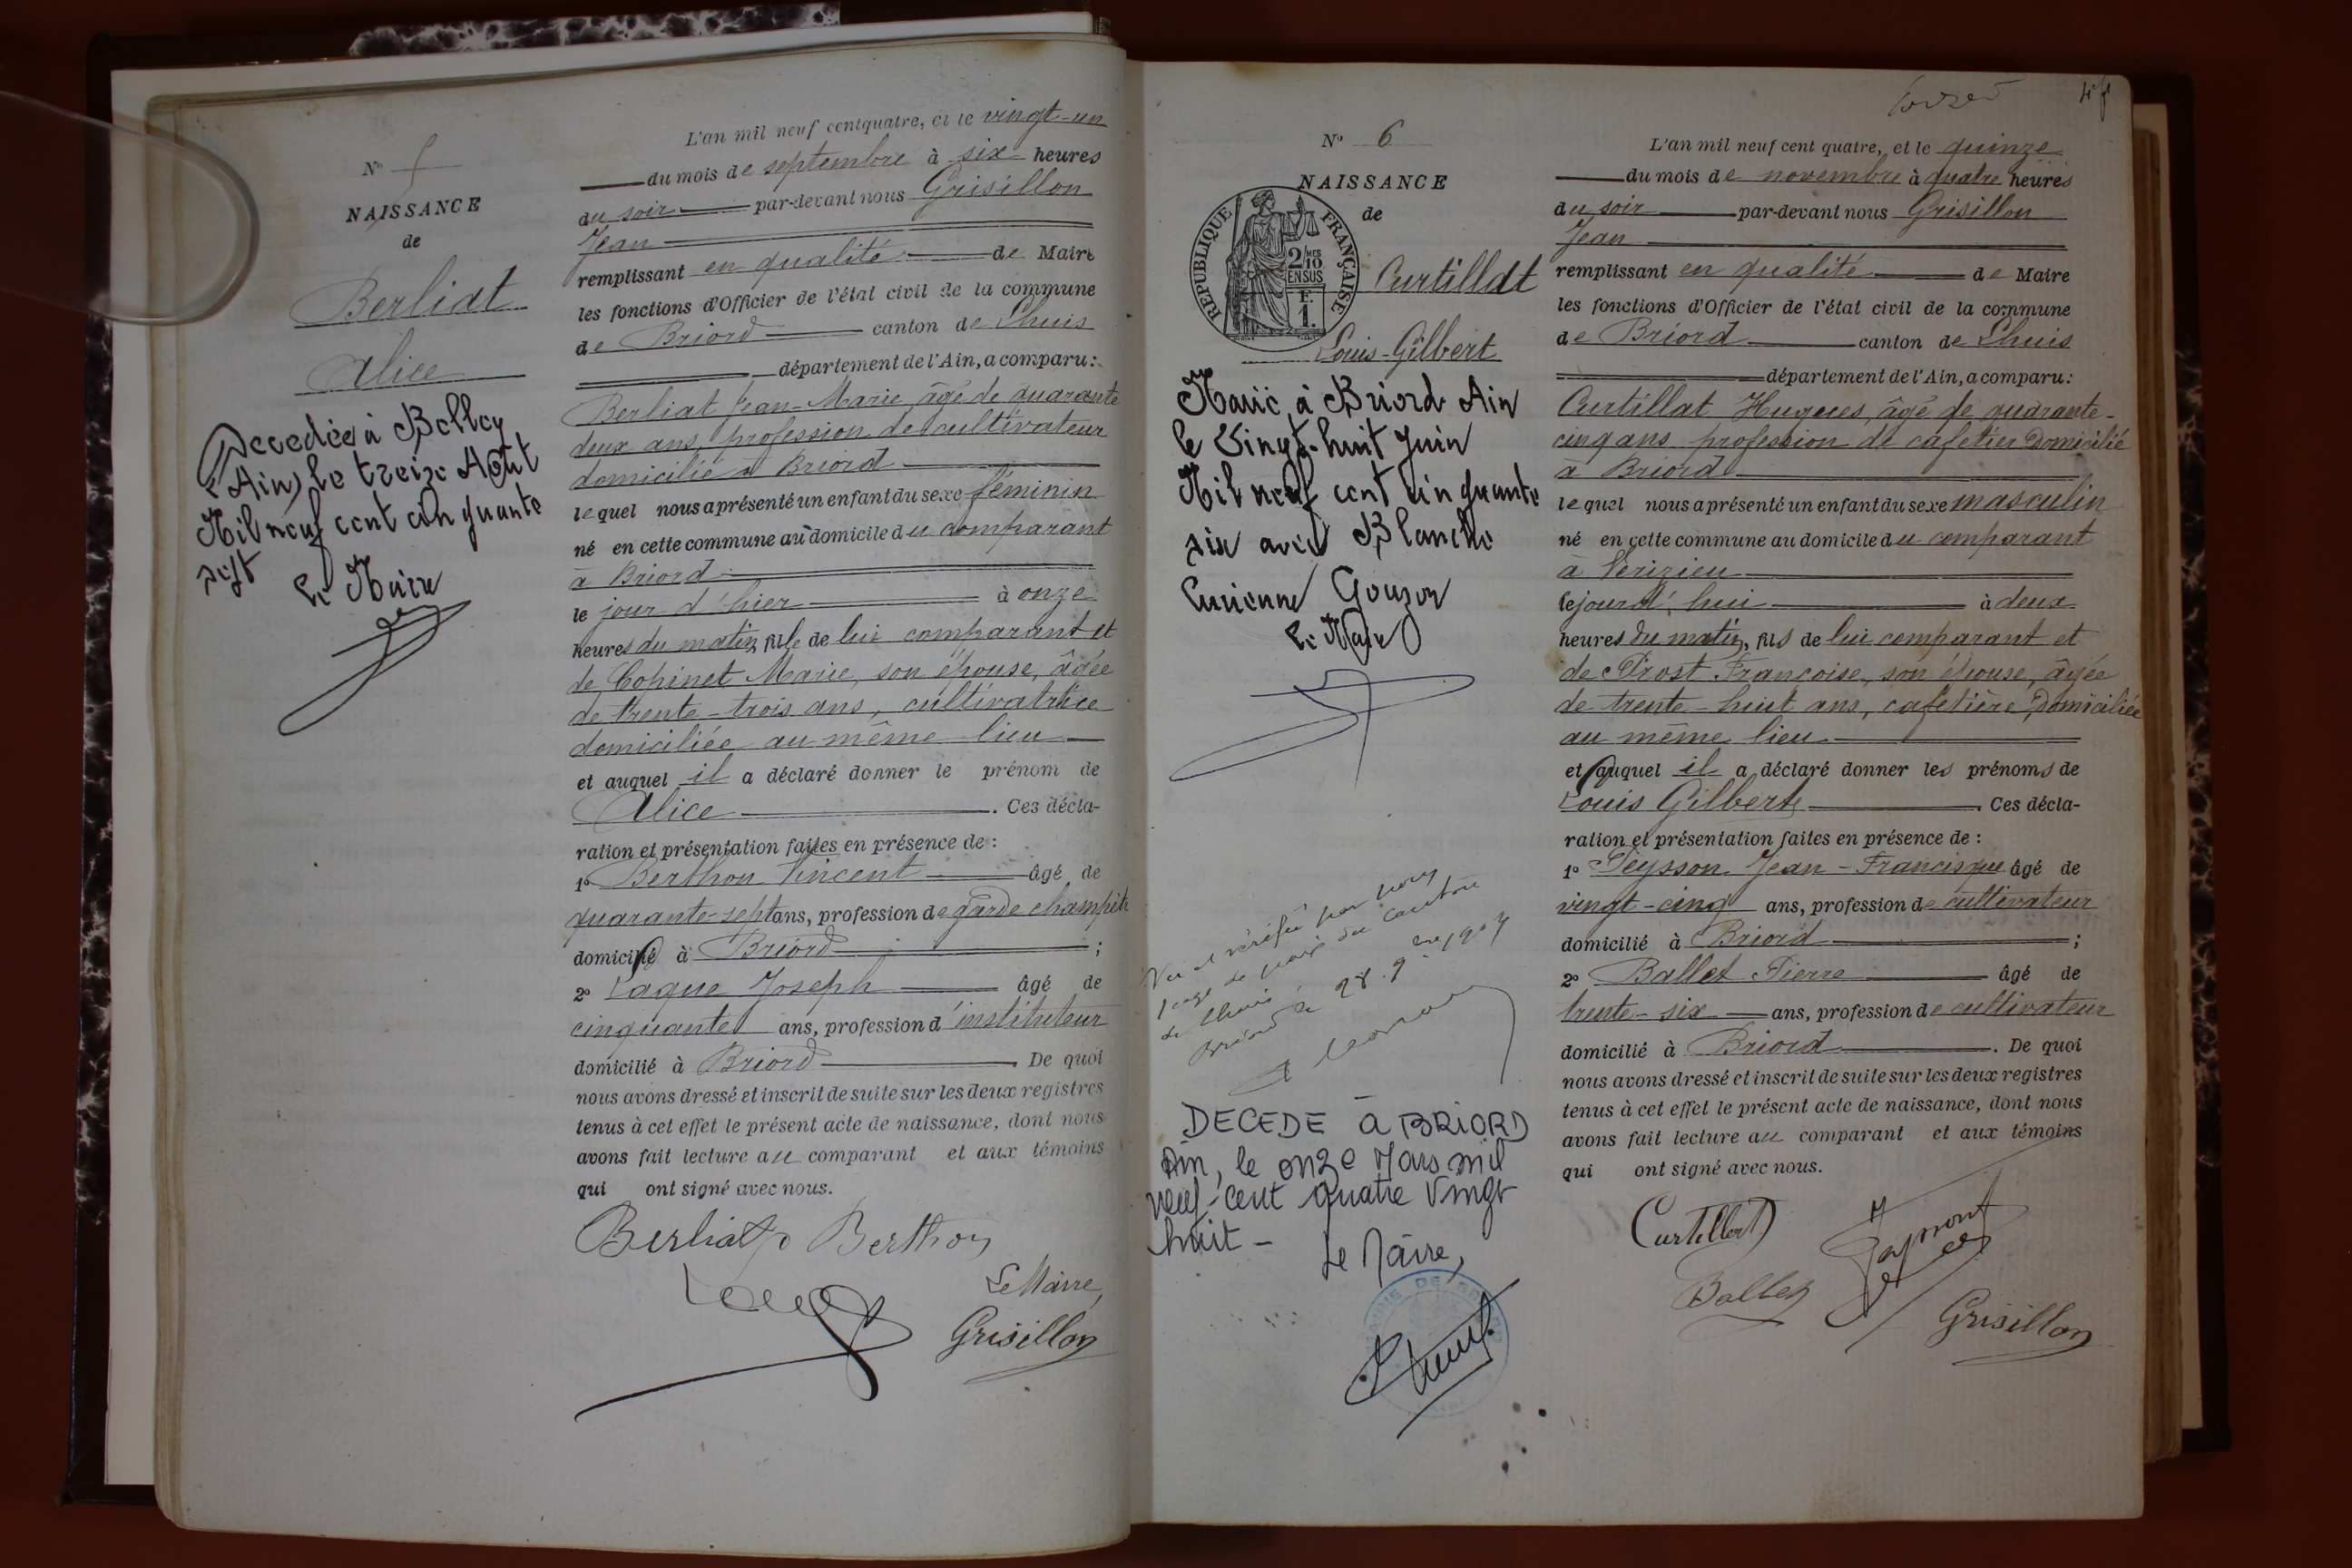 N° 5
NAISSANCE
de
Berliat
Alice
Decedée à Belley
(Ain) le treize Août
Mil neuf cent cinquante
sept
Le Maire
L'an mil neuf cent quatre, et le vingt-un
du mois de septembre à six heures
du soir par-devant nous Grisillon
Jean
remplissant en qualité de Maire
les fonctions d'Officier de l'état civil de la commune
de Briord canton de Lhuis
département de l'Ain, a comparu:
Berliat Jean-Marie, âgé de quarante
deux ans, profession de cultivateur
domicilié à Briord
lequel nous a présenté un enfant du sexe féminin
né en cette commune au domicile du comparant
à Briord
le jour d'hier à onze
heures du matin, fille de lui comparant et
de Copinet Marie, son épouse, âgée
de trente-trois ans, cultivatrice
domiciliée au même lieu
et auquel il a déclaré donner le prénom de
Alice. Ces décla-
ration et présentation faites en présence de:
1° Berthon Vincent âgé de
quarante-sept ans, profession de garde champêtre
domicilié à Briord;
2° Laque Joseph âgé de
cinquante ans, profession d'instituteur
domicilié à Briord. De quoi
nous avons dressé et inscrit de suite sur les deux registres
tenus à cet effet le présent acte de naissance, dont nous
avons fait lecture au comparant et aux témoins
qui ont signé avec nous.
Berliat Berthon
Le Maire,
Grisillon
4
N° 6
NAISSANCE
de
REPUBLIQUE FRANÇAISE
2/10 MES
EN SUS
F.
1.
Curtillat
Louis-Gilbert
Marié à Briord Ain
le Vingt-huit Juin
Mil neuf cent cinquante
six avec Blanche
Lucienne Gouzon
Le Maire
Vu et vérifié par nous
juge de paix du canton
de Lhuis
Briord le 28 9bre 1904
DECEDE à BRIORD
Ain, le onze Mars mil
neuf-cent quatre vingt
huit -
Le Maire,
L'an mil neuf cent quatre, et le quinze
du mois de novembre à quatre heures
du soir par-devant nous Grisillon
Jean
remplissant en qualité de Maire
les fonctions d'Officier de l'état civil de la commune
de Briord canton de Lhuis
département de l'Ain, a comparu:
Curtillat Hugues, âgé de quarante-
cinq ans profession de cafetier domicilié
à Briord
lequel nous a présenté un enfant du sexe masculin
né en cette commune au domicile du comparant
à Vérizieu
le jour d'hui à deux
heures du matin, fils de lui comparant et
de Prost Françoise, son épouse, âgée
de trente-huit ans, cafetière, domiciliée
au même lieu
et auquel il a déclaré donner les prénoms de
Louis Gilbert. Ces décla-
ration et présentation faites en présence de:
1° Peysson Jean-Francisque âgé de
vingt-cinq ans, profession de cultivateur
domicilié à Briord;
2° Ballet Pierre âgé de
trente-six ans, profession de cultivateur
domicilié à Briord. De quoi
nous avons dressé et inscrit de suite sur les deux registres
tenus à cet effet le présent acte de naissance, dont nous
avons fait lecture au comparant et aux témoins
qui ont signé avec nous.
Curtillat
Ballet
Grisillon